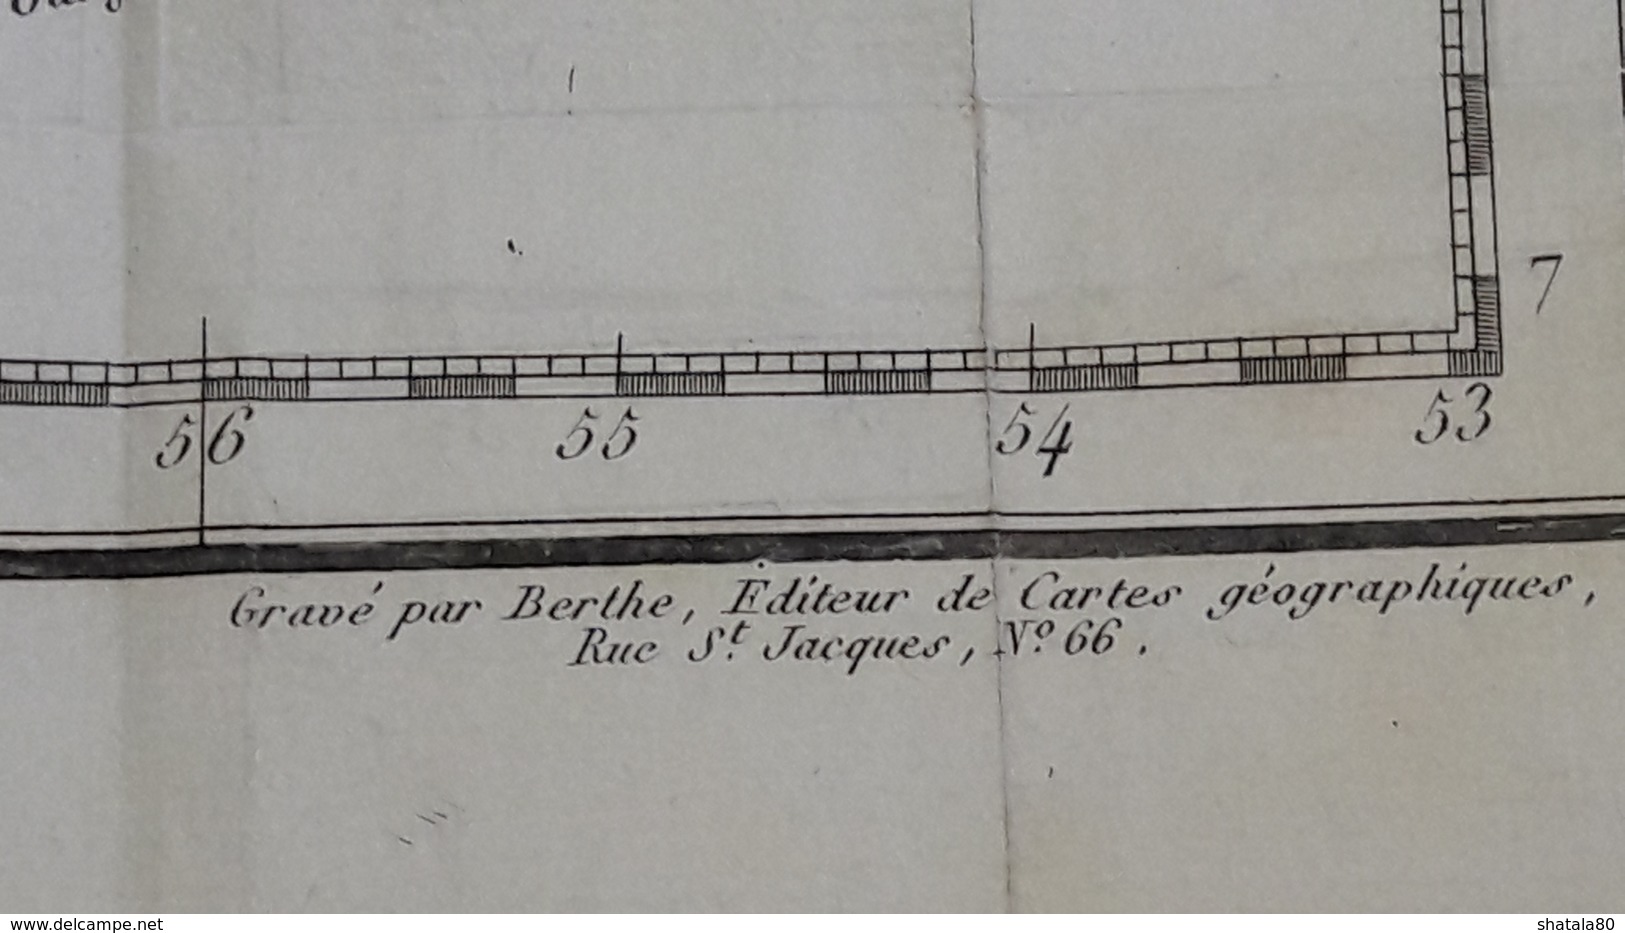 7
56 55 54 53
Gravé par Berthe, Éditeur de Cartes géographiques,
Rue St. Jacques, No. 66.
www.delcampe.net shatala80